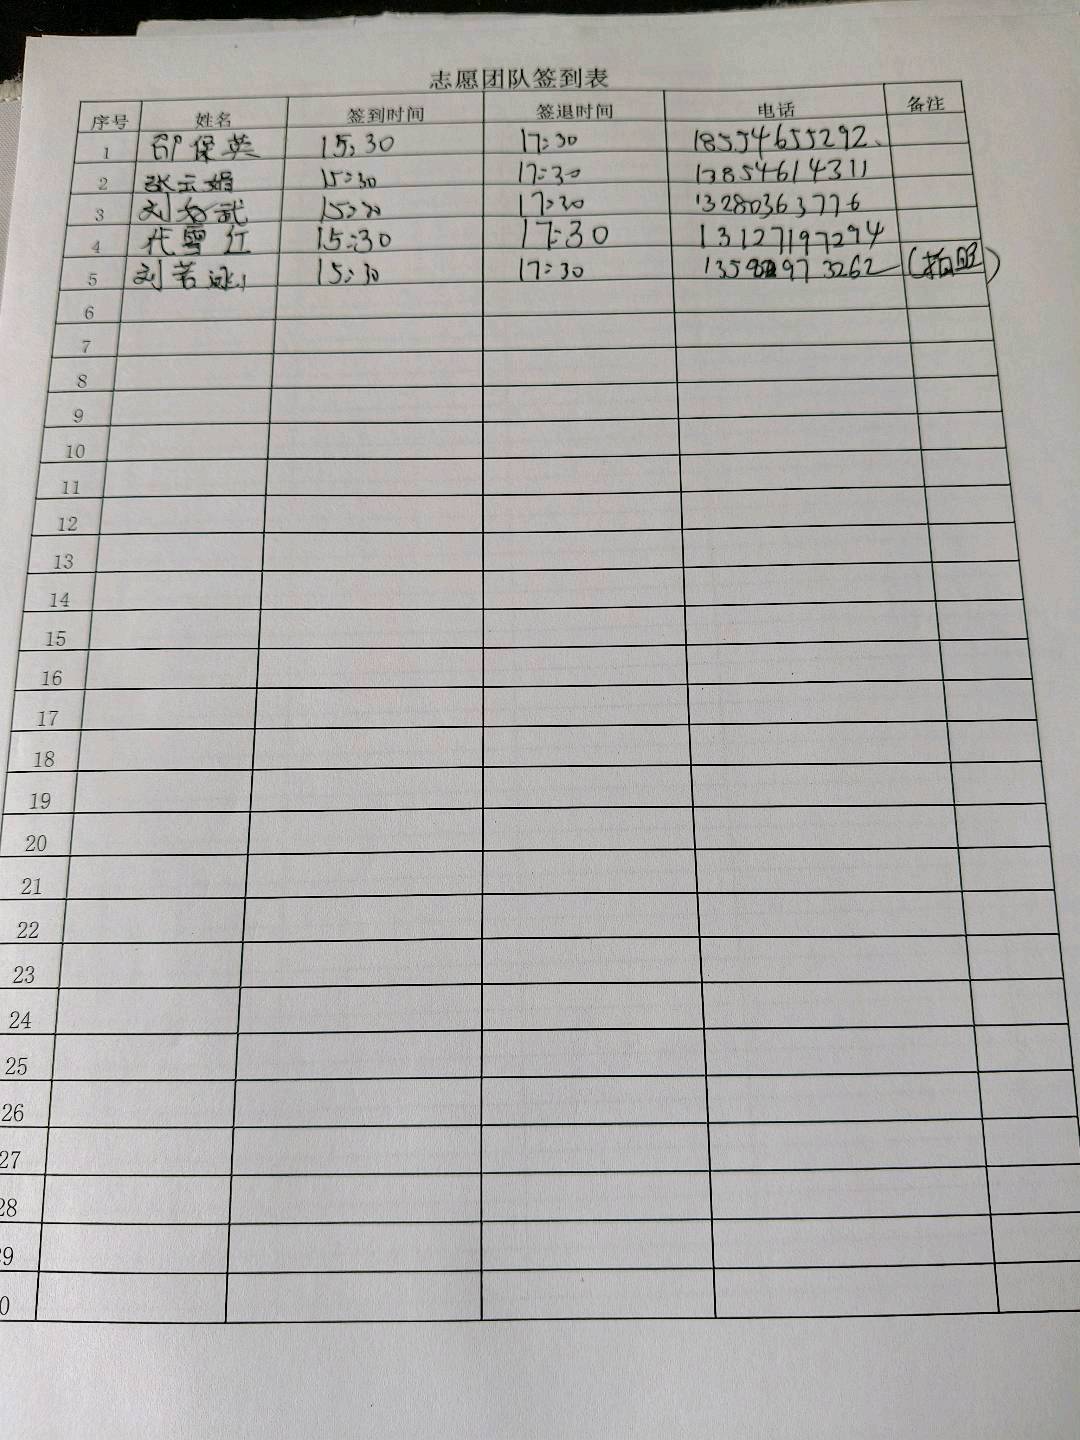 志愿团队签到表
序号 姓名 签到时间 签退时间 电话 备注
1 邵保英 15:30 17:30 18554655292
2 张云娟 15:30 17:30 13854614311
3 刘 武 15:30 17:30 13280363776
4 代雪红 15:30 17:30 13127197294
5 刘若冰 15:30 17:30 (拍照)
6
7
8
9
10
11
12
13
14
15
16
17
18
19
20
21
22
23
24
25
26
27
28
29
0